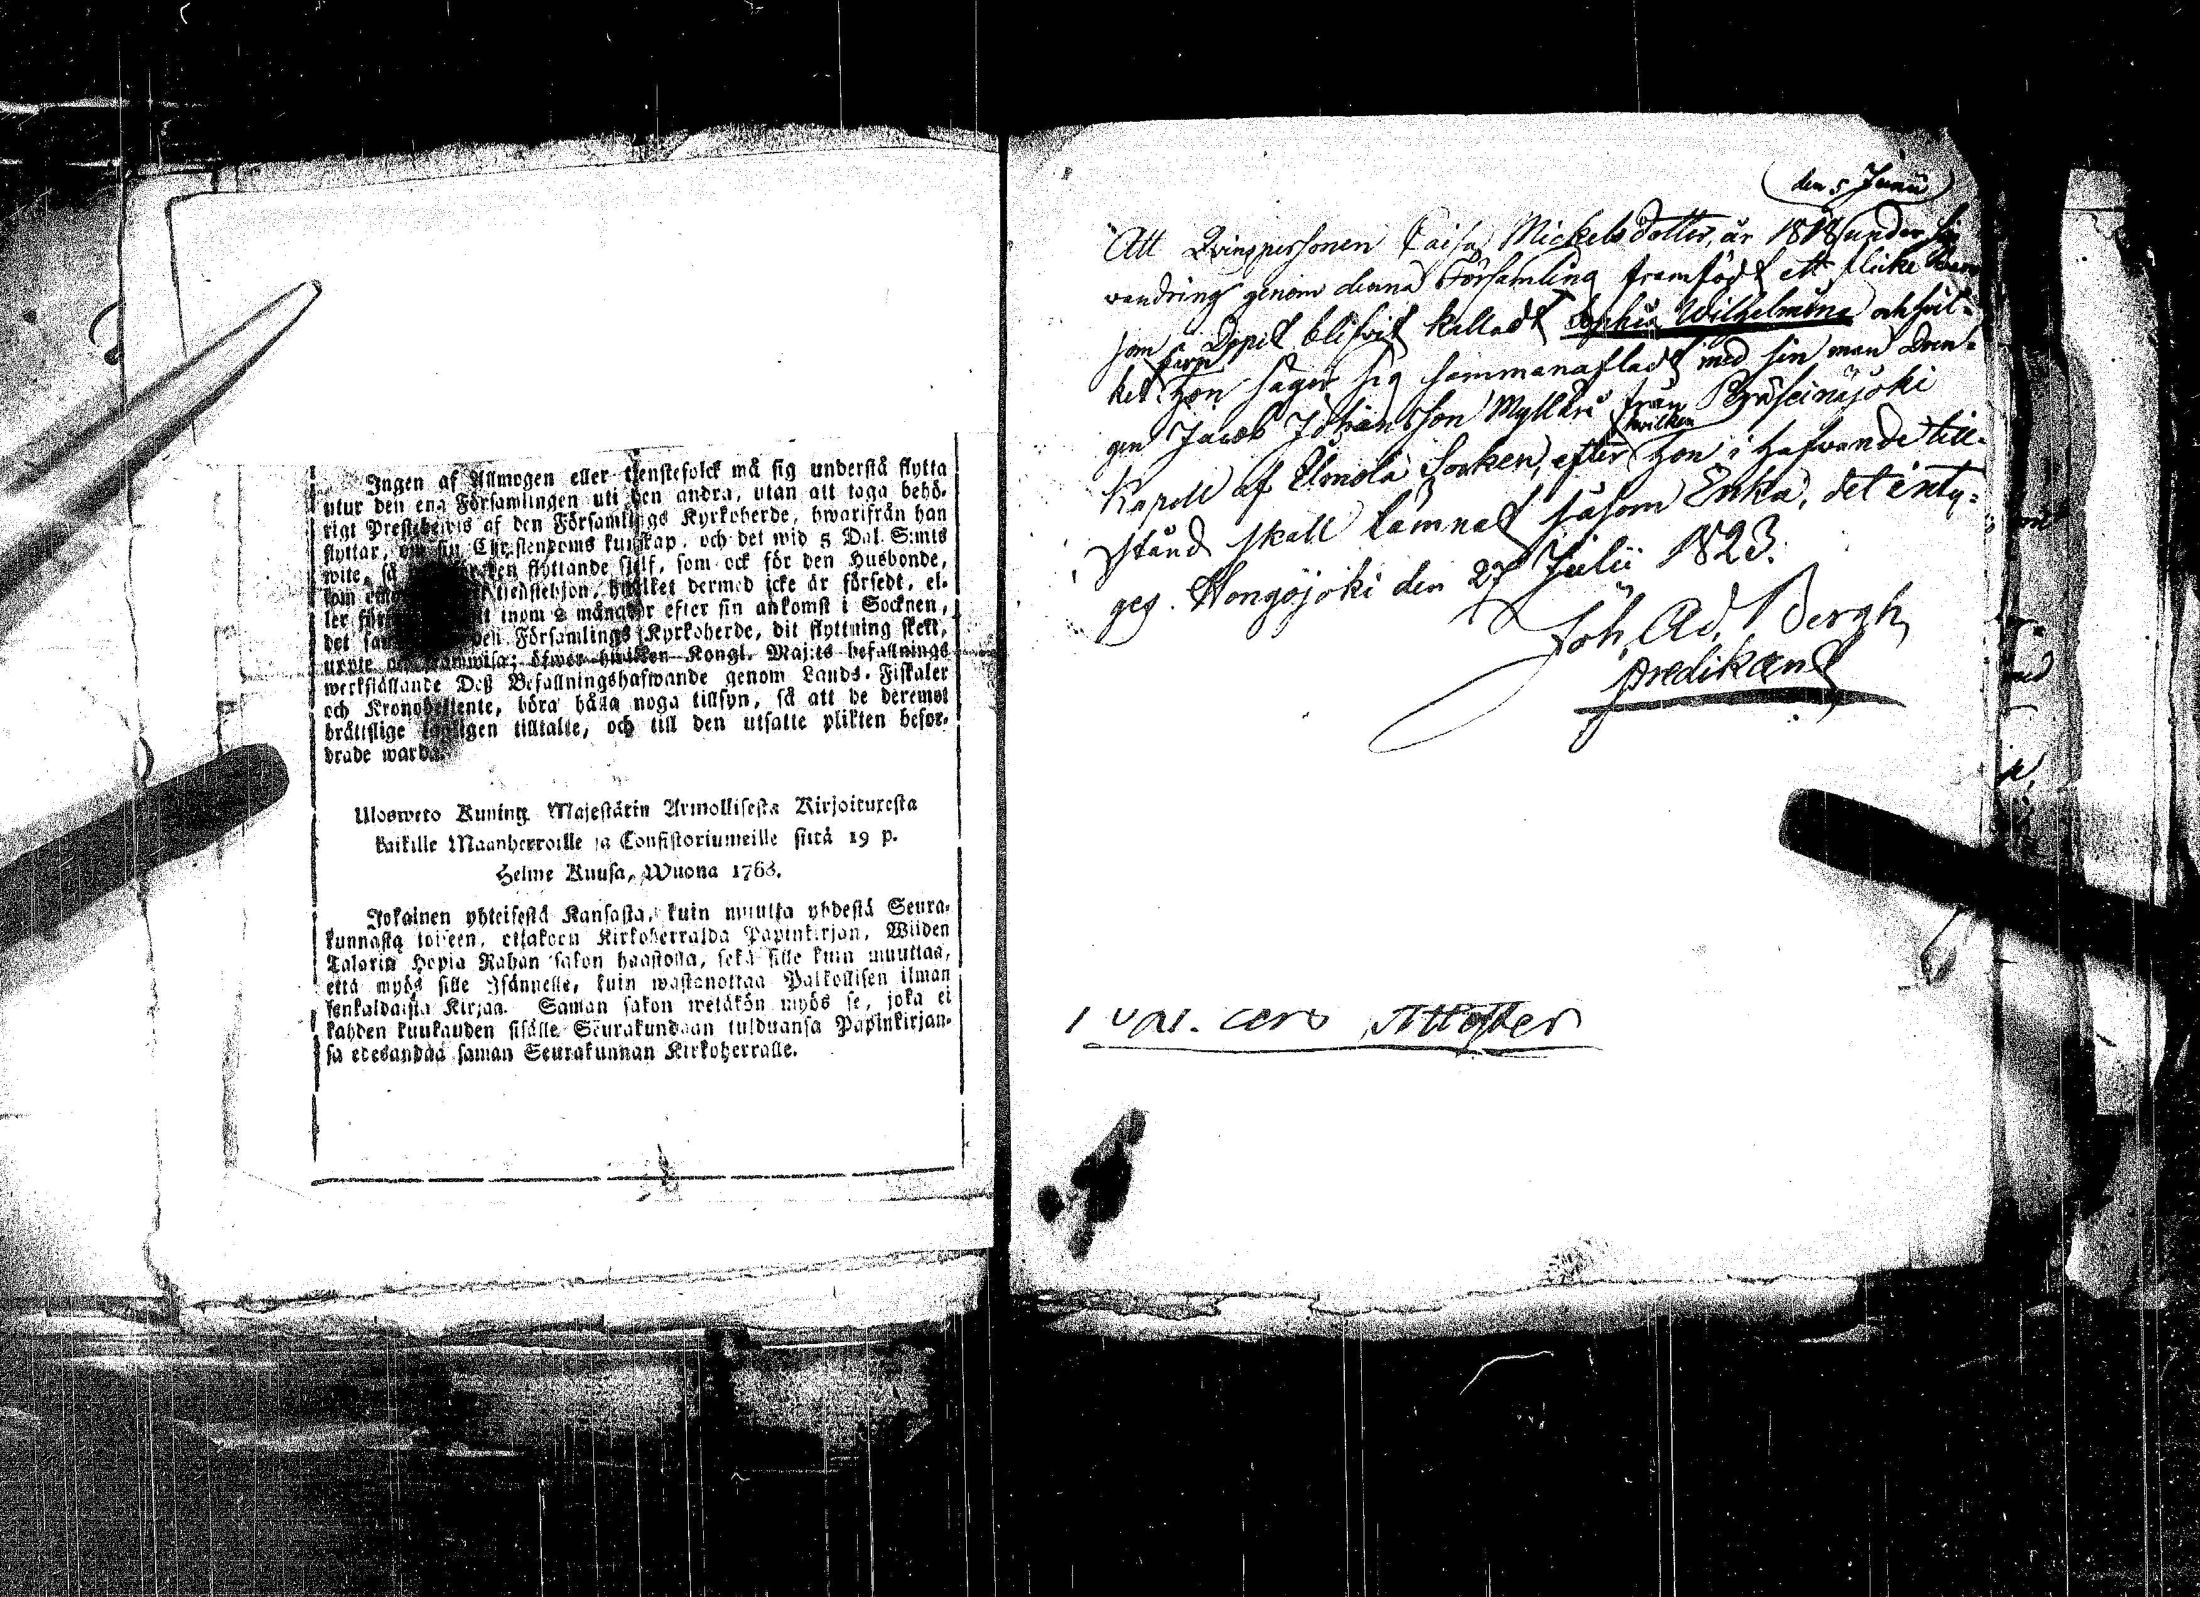 Ingen af Allmogen eller tienstefolck må sig understå flytta
utur den ena Församlingen uti den andra, utan att taga behö-
rigt Prestebewis af den Församlings Kyrkoherde, hwarifrån han
flyttar, om sin Christendoms kunskap, och det wid 5 Dal. S:mts
wite, så den flyttande sielf, som ock för den Husbonde,
som tienstehjon, hwilket dermed icke är försedt, el-
ler inom 2 månader efter sin ankomst i Socknen,
det den Församlings Kyrkoherde, dit flyttning skett,
upte öfwer hwilken Kongl. Maj:ts befallnings
werkställande Deß Befallningshafwande genom Lands-Fiskaler
och Kronobetiente, böra hålla noga tillsyn, så att de deremot
bråttslige lagligen tilltalte, och till den utsatte plikten befor-
drade warda.
Uloswето Kuning. Majestätin Armollisesta Kirjoituxesta
kaikille Maanherroille ja Consistoriumeille siitä 19 p.
Helme Kuusa, Wuona 1763.
Jokainen yhteisestä Kansasta, kuin muutta yhdestä Seura-
kunnasta toiseen, ottakoon Kirkoherralda Papinkirjan, Wiiden
Talarin Hopia Rahan sakon haastolla, sekä sille kuin muuttaa,
että myös sille Isännelle, kuin wastanottaa Palkollisen ilman
senkaldaista Kirjaa. Saman sakon wetäkön myös se, joka ei
kahden kuukauden sisälle Seurakundaan tulduansa Papinkirjan-
sa edesandaa saman Seurakunnan Kirkoherralle.
(den 5 Junii)
Att Qvinspersonen Caisa Mickelsdotter, år 1818 under sin
vandring genom denna Församling framfödt ett flicke Barn
som i Dopet blifvit kalladt Sophia Wilhelmina och hvil-
ket barn hon säger sig sammanafladt med sin man Dren-
gen Jacob Johansson Mylläri från Peräseinäjoki
Kapell af Ilmola Socken, efter hwilken hon i hafvande till-
stånd skall lämnat såsom Enka, det inty-
gas. Hongojoki den 27 Julii 1823.
Joh. Ad. Bergh
predikant
1 Attester